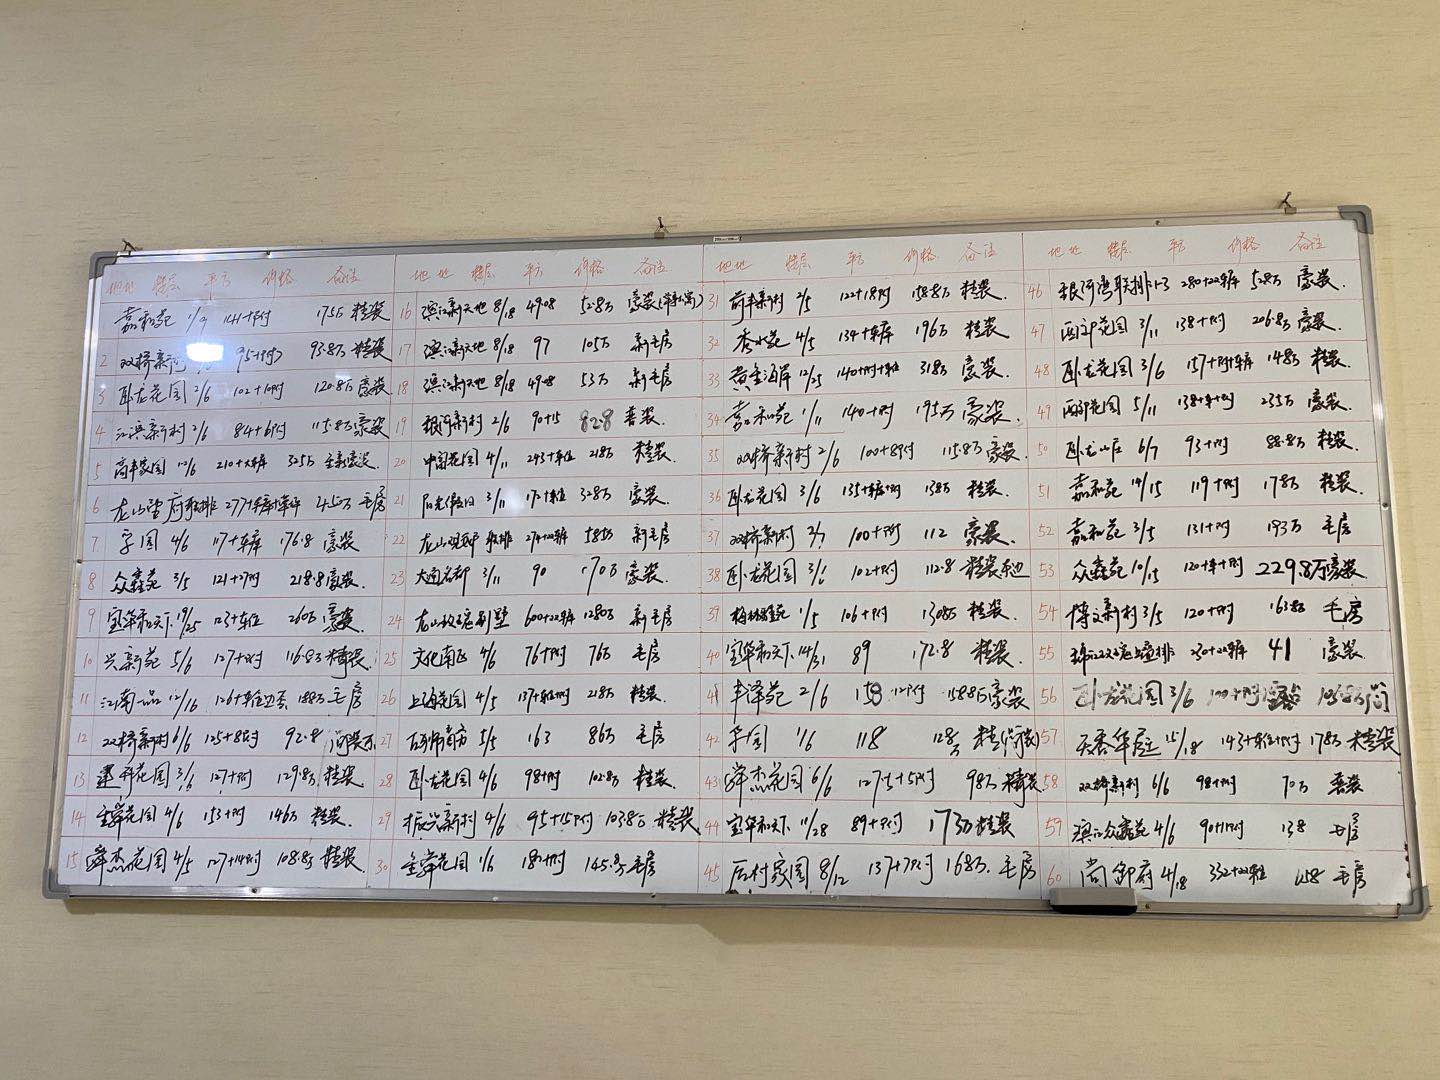 地址 楼层 平方 价格 备注
嘉和苑 1/9 141+附 175万 精装
2 双桥新村 95+附 93.8万 精装
3 卧龙花园 2/6 102+10附 120.8万 豪装
4 江滨新村 2/6 84+6附 115.8万 豪装
5 高丰家园 210+大车库 325万 全新豪装
6 龙山壹府联排 277+车库 450万 毛房
7 学园 4/6 117+车库 176.8 豪装
8 众鑫苑 3/5 121+27附 218.8 豪装
9 宝华和天下 19/25 123+车位 260万 豪装
10 兴新苑 5/6 127+附 116.8万 精装
11 江南一品 12/16 126+车位 188万 毛房
12 双桥新村 6/6 125+8附 92.8 简装
13 建行花园 3/6 127+附 129.8万 精装
14 金辉花园 4/6 153+附 146万 精装
15 舜杰花园 4/5 127+14附 108.8万 精装
地址 楼层 平方 价格 备注
16 滨江新天地 8/18 49.08 52.8万 豪装
17 滨江新天地 8/18 97 105万 新毛房
18 滨江新天地 8/18 49.08 53万 新毛房
19 银河新村 2/6 90+15 82.8 普装
20 中南花园 4/11 243+车位 218万 精装
21 阳光假日 3/11 172+车位 328万 豪装
22 龙山观邸 联排 274+22车库 585万 新毛房
23 大通名都 3/11 90 170万 豪装
24 龙山玫瑰别墅 600+22车库 1280万 新毛房
25 文化南区 4/6 76+附 76万 毛房
26 上海花园 4/5 137+车位+附 218万 精装
27 石狮商方 5/5 163 86万 毛房
28 卧龙花园 4/6 98+附 102.8万 精装
29 振兴新村 4/6 95+15附 103.8万 精装
30 金辉花园 1/6 181+附 145.8万 毛房
地址 楼层 平方 价格 备注
31 前丰新村 2/5 122+18附 158.8万 精装
32 香水苑 4/5 134+车库 196万 精装
33 黄金海岸 12/25 140+附+车位 318万 豪装
34 嘉和苑 1/11 140+附 195万 豪装
35 双桥新村 2/6 100+8附 115.8万 豪装
36 卧龙花园 3/6 135+车库+附 138万 精装
37 双桥新村 100+附 112 豪装
38 卧龙花园 3/6 102+附 112.8 精装东边
39 梅林馨苑 1/5 106+附 130.8万 精装
40 宝华和天下 14/31 89 172.8 精装
41 丰泽苑 2/6 158 12附 158.8万 豪装
42 学园 1/6 118 128万 精(简装)
43 舜杰花园 6/6 127.5+5附 98万 精装
44 宝华和天下 11/28 89+附 173万 精装
45 后村家园 8/12 137+7附 168万 毛房
地址 楼层 平方 价格 备注
46 银河湾联排 1-3 280+22车库 528万 豪装
47 西郊花园 3/11 138+附 206.8万 豪装
48 卧龙花园 3/6 157+附+车库 148万 精装
49 西郊花园 5/11 138+车+附 235万 豪装
50 卧龙山庄 6/7 93+附 88.8万 精装
51 嘉和苑 14/15 119+附 178万 精装
52 嘉和苑 3/5 131+附 193万 毛房
53 众鑫苑 10/15 120+车+附 229.8万 豪装
54 博文新村 3/5 120+附 163.8万 毛房
55 230+22车库 41 豪装
56 卧龙花园 3/6 100+附 露台 106.8万 简
57 天香华庭 15/18 143+车位+附 178万 精装
58 双桥新村 6/6 98+附 70万 普装
59 滨江众鑫苑 4/6 90+11附 138 毛房
60 尚御府 4/18 332+22车位 458 毛房